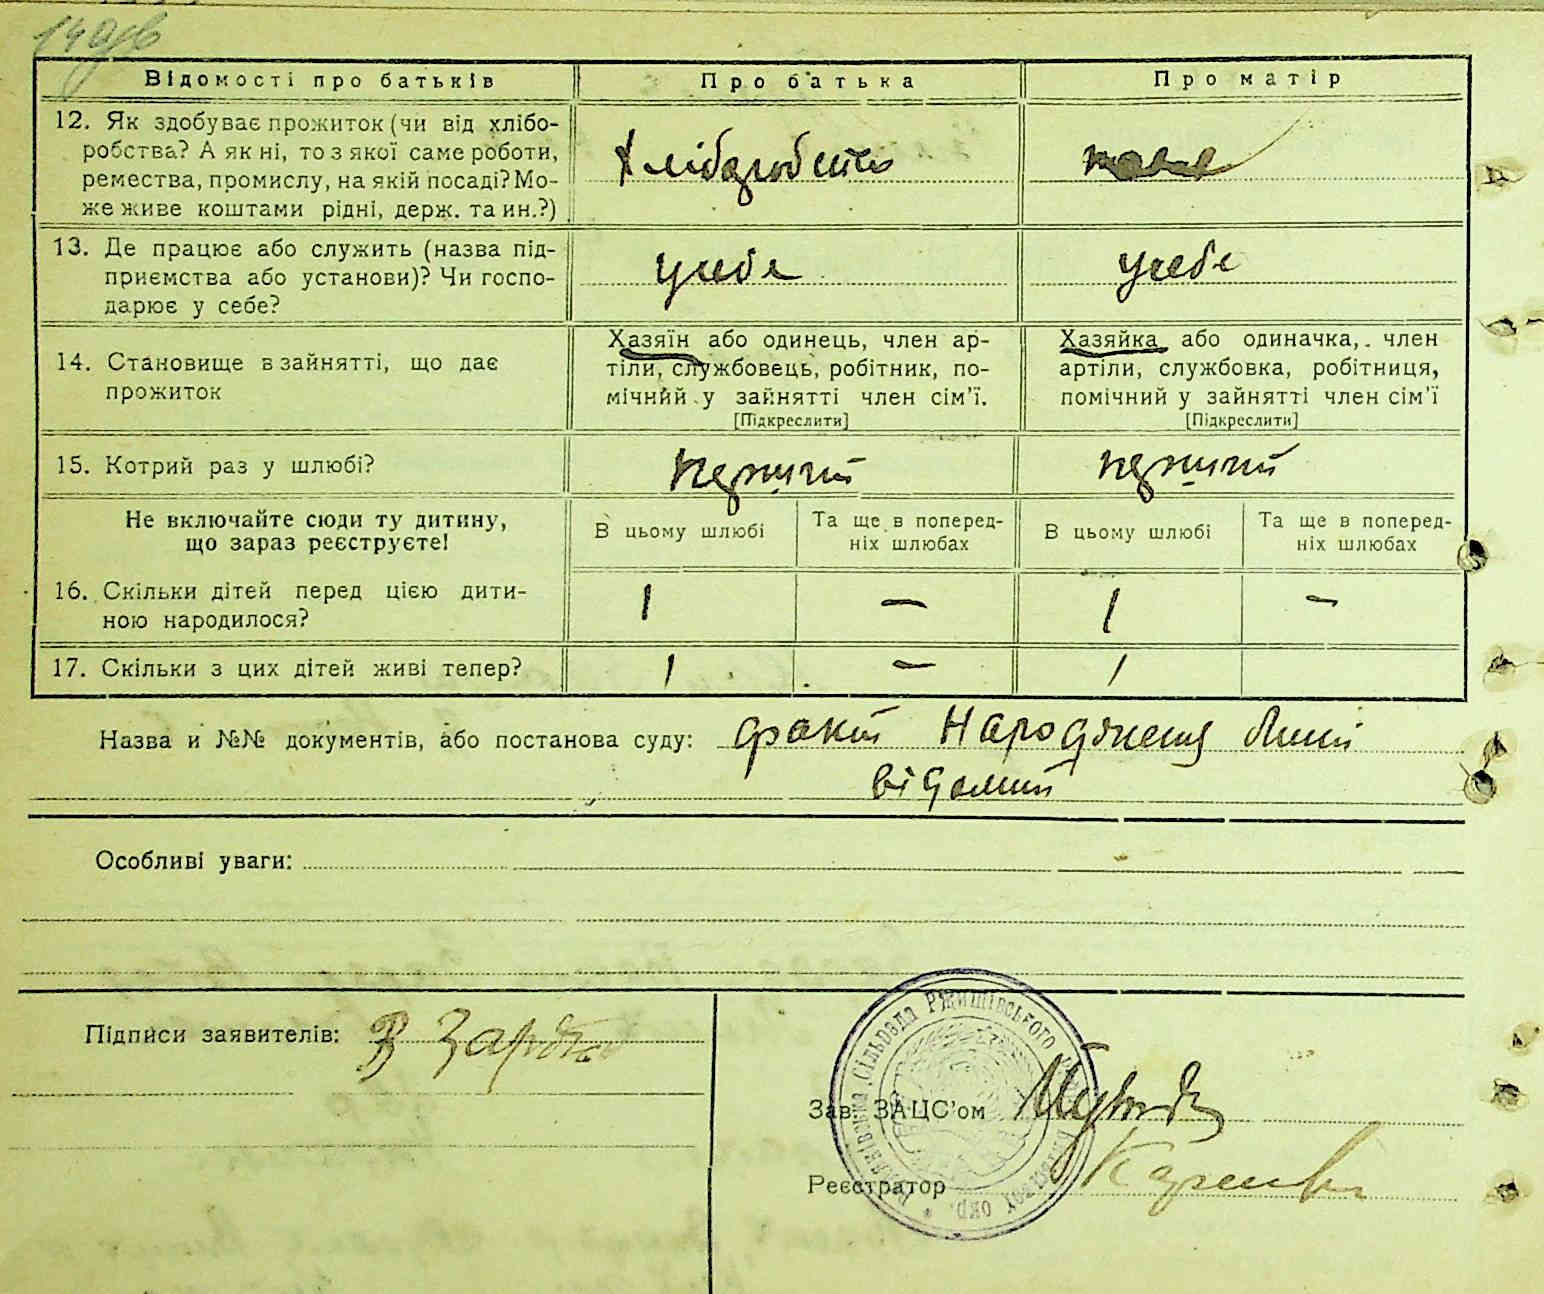 Відомості про батьків
Про батька
Про матір
12. Як здобуває прожиток (чи від хлібо-
робства? А як ні, то з якої саме роботи,
ремества, промислу, на якій посаді? Мо-
же живе коштами рідні, держ. та ин.?)
Хлібороbство
13. Де працює або служить (назва під-
приємства або установи)? Чи госпо-
дарює у себе?
у себе
у себе
14. Становище в зайнятті, що дає
прожиток
Хазяїн або одинець, член ар-
тіли, службовець, робітник, по-
мічний у зайнятті член сім'ї.
[Підкреслити]
Хазяйка або одиначка, член
артіли, службовка, робітниця,
помічний у зайнятті член сім'ї
[Підкреслити]
15. Котрий раз у шлюбі?
первий
первий
Не включайте сюди ту дитину,
що зараз реєструєте!
В цьому шлюбі
Та ще в поперед-
ніх шлюбах
В цьому шлюбі
Та ще в поперед-
ніх шлюбах
16. Скільки дітей перед цією дити-
ною народилося?
1 — 1 —
17. Скільки з цих дітей живі тепер?
1 — 1
Назва и №№ документів, або постанова суду: факт народження
відомий
Особливі уваги:
Підписи заявителів: В
Сільрада Ржищівського
окр.
Зав. ЗАЦС'ом
Реєстратор